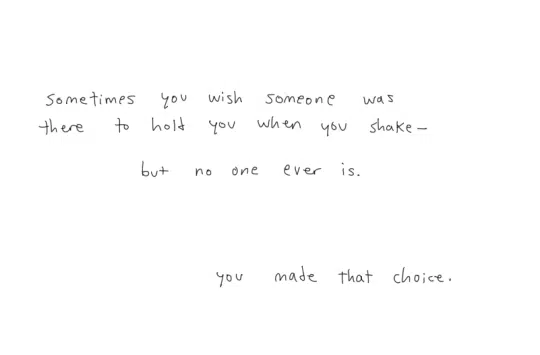 sometimes you wish someone was
there to hold you when you shake—
but no one ever is.
you made that choice.